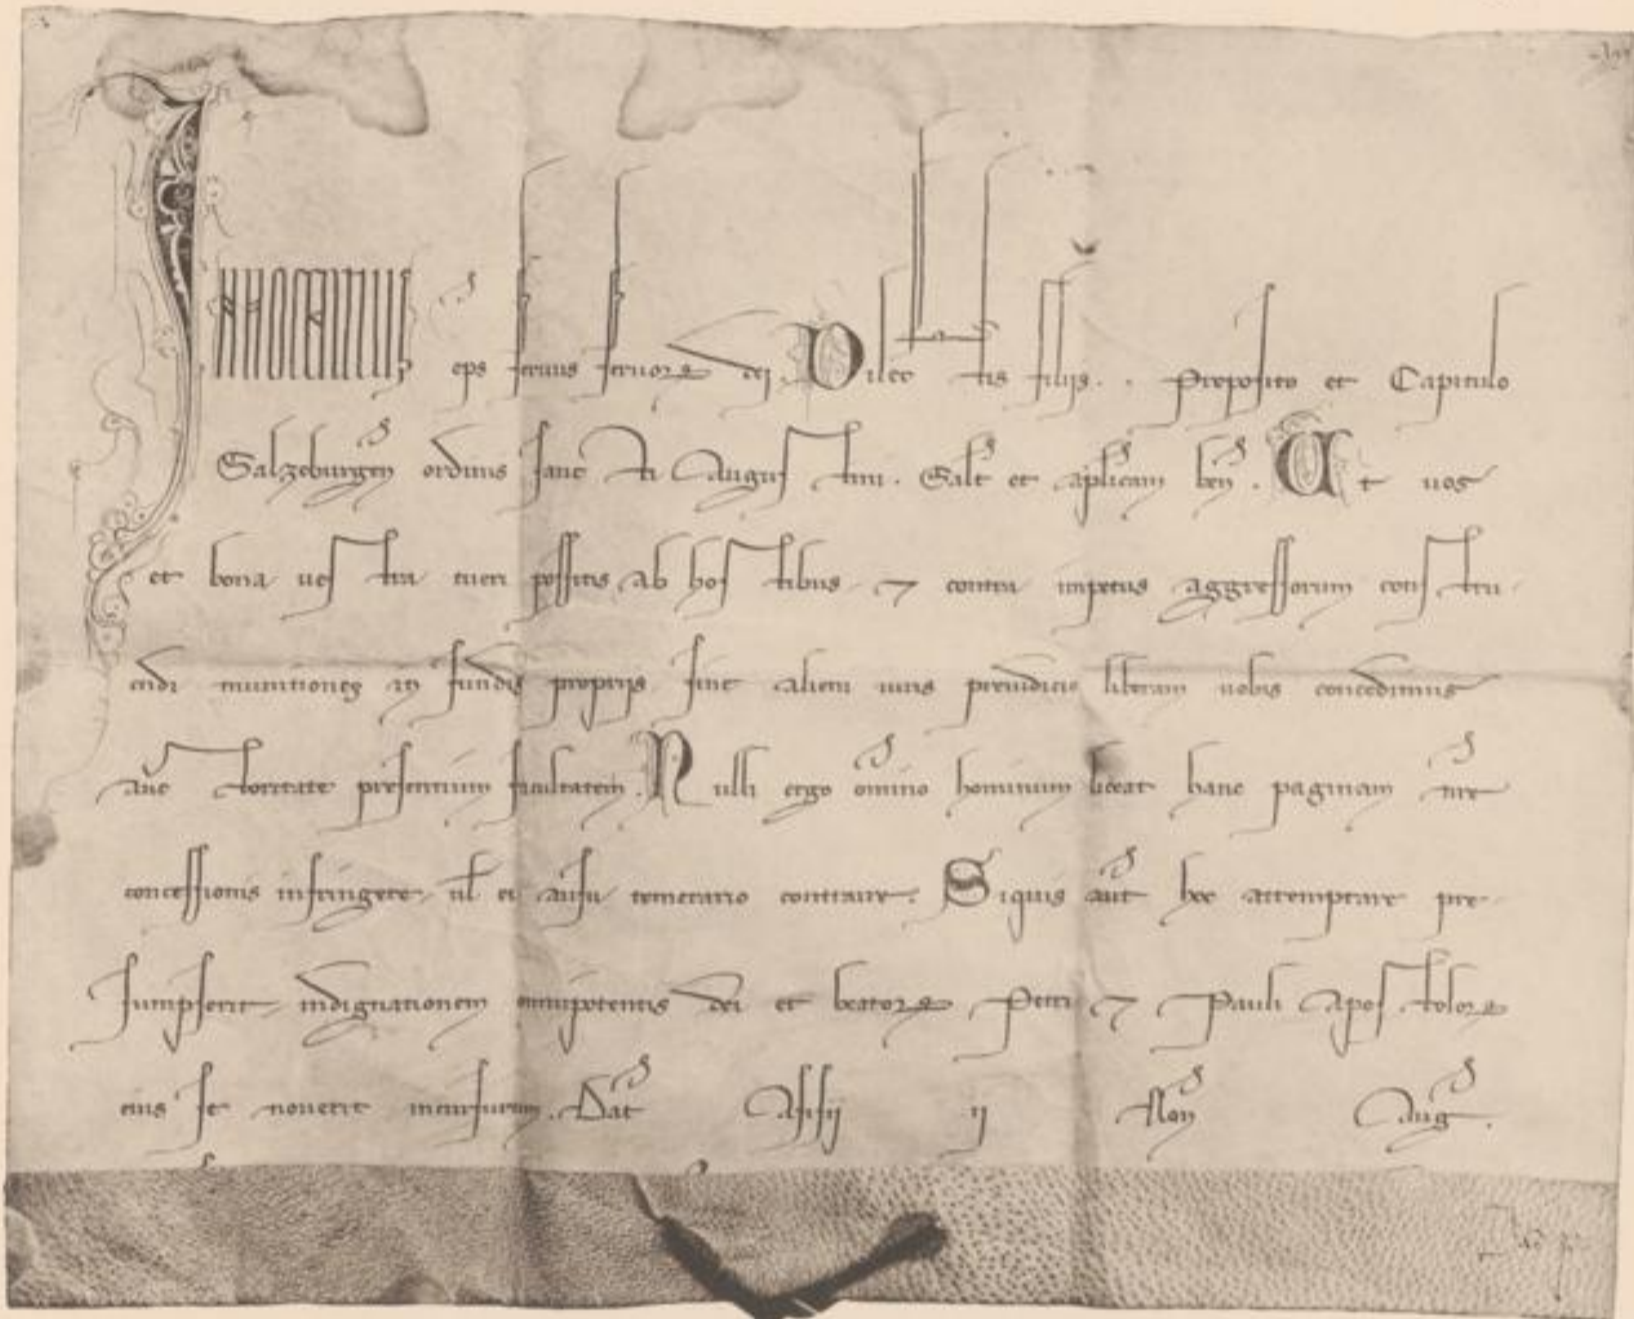 INNOCENTIUS eps seruus seruor dei. Dilectis filijs . . Preposito et Capitulo
Salzeburgen ordinis sancti Augustini. Salt et aplicam ben. Ut uos
et bona uestra tueri possitis ab hostibus 7 contra impetus aggressorum constru
endi munitiones in fundis proprijs sine alieni iuris preiudicio liberam uobis concedimus
auctoritate presentium facultatem. Nulli ergo omino hominum liceat hanc paginam nre
concessionis infringere ul ei ausu temerario contraire. Siquis aut hoc attemptare pre
sumpserit indignationem omnipotentis dei et beator Petri 7 Pauli Apostolor
eius se nouerit incursurum. Dat Asisij ij Non Aug.